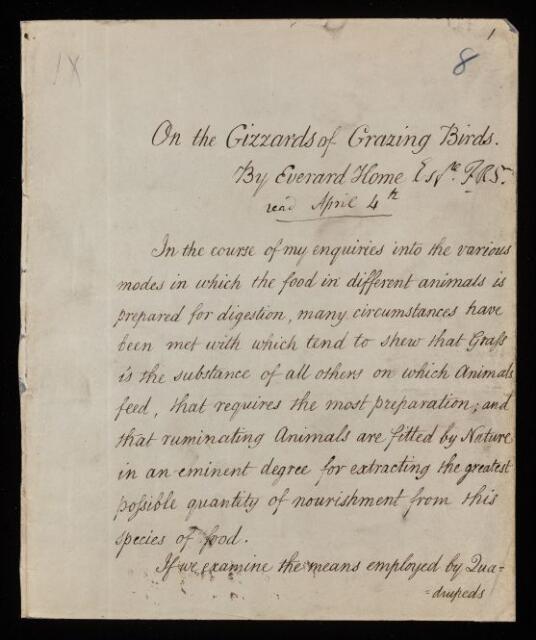 IX
1
8
On the Gizzards of Grazing Birds.
By Everard Home Esqre. F.R.S.
read April 4th
In the course of my enquiries into the various
modes in which the food in different animals is
prepared for digestion, many circumstances have
been met with which tend to shew that Graſs
is the substance of all others on which Animals
feed, that requires the most preparation; and
that ruminating Animals are fitted by Nature
in an eminent degree for extracting the greatest
poſsible quantity of nourishment from this
species of food.
If we examine the means employed by Qua=
=drupeds